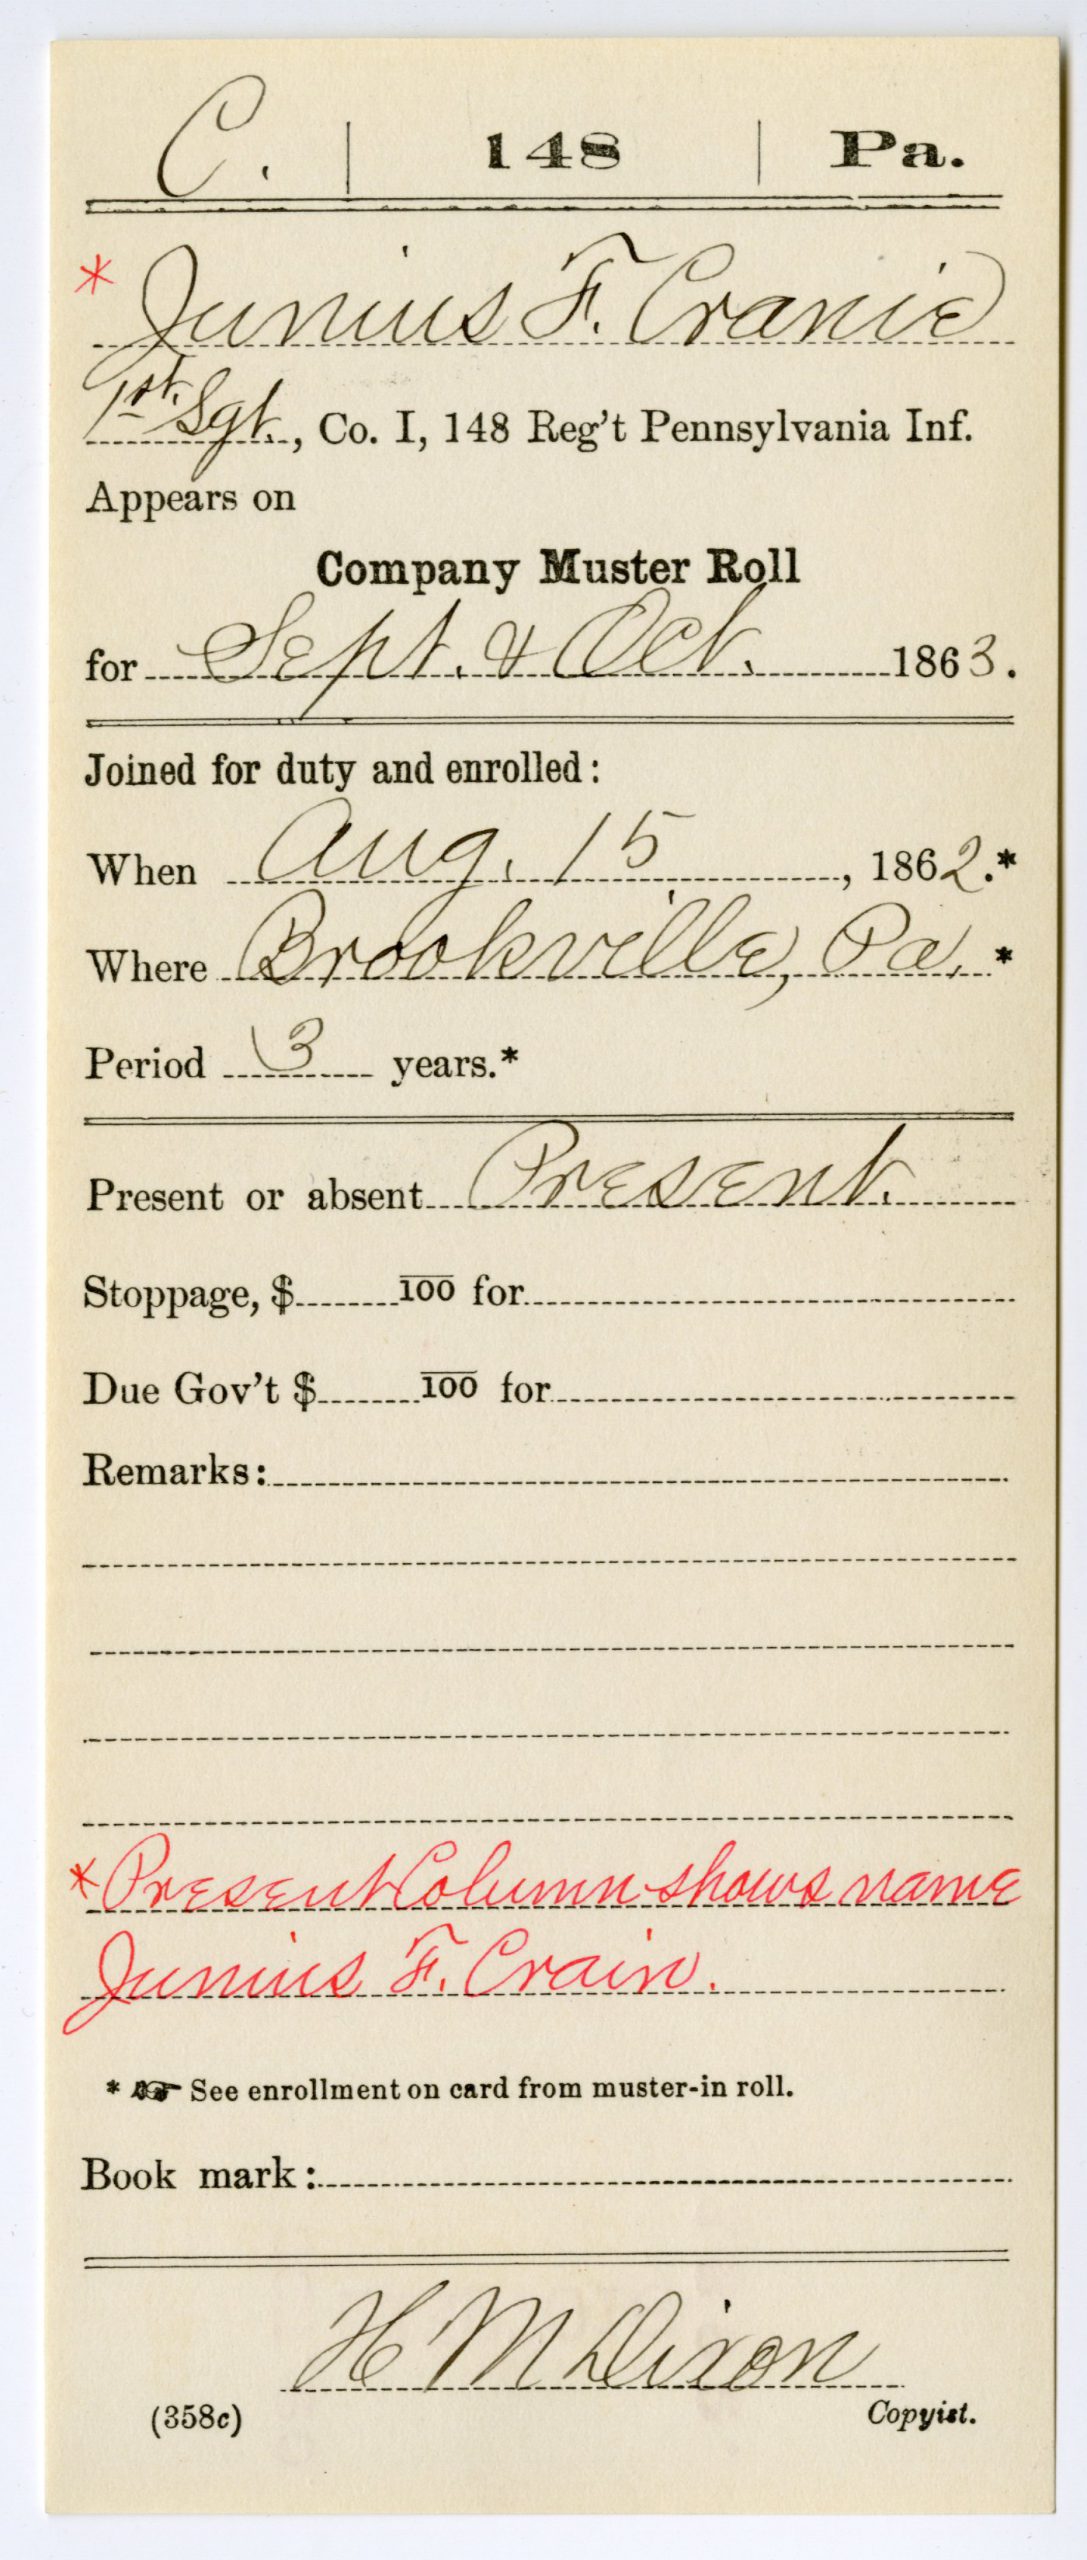 C. | 148 | Pa.
* Junius F. Cranie
1st. Sgt., Co. I, 148 Reg't Pennsylvania Inf.
Appears on
Company Muster Roll
for Sept. & Oct. 1863.
Joined for duty and enrolled:
When Aug. 15, 1862.*
Where Brookville, Pa. *
Period 3 years.*
Present or absent Present.
Stoppage, $ 100 for
Due Gov't $ 100 for
Remarks:
* Present Column shows name
Junius F. Crain.
* ☞ See enrollment on card from muster-in roll.
Book mark:
H M Dixon
(358c) Copyist.